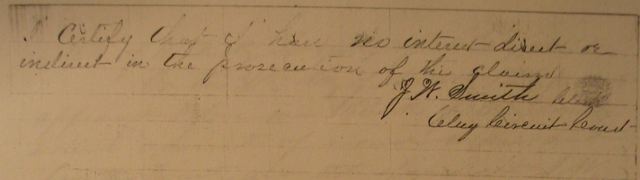 I Certify that I have no interest direct or
indirect in the prosecution of this claim
J. W. Smith Clerk
Clay Circuit Court